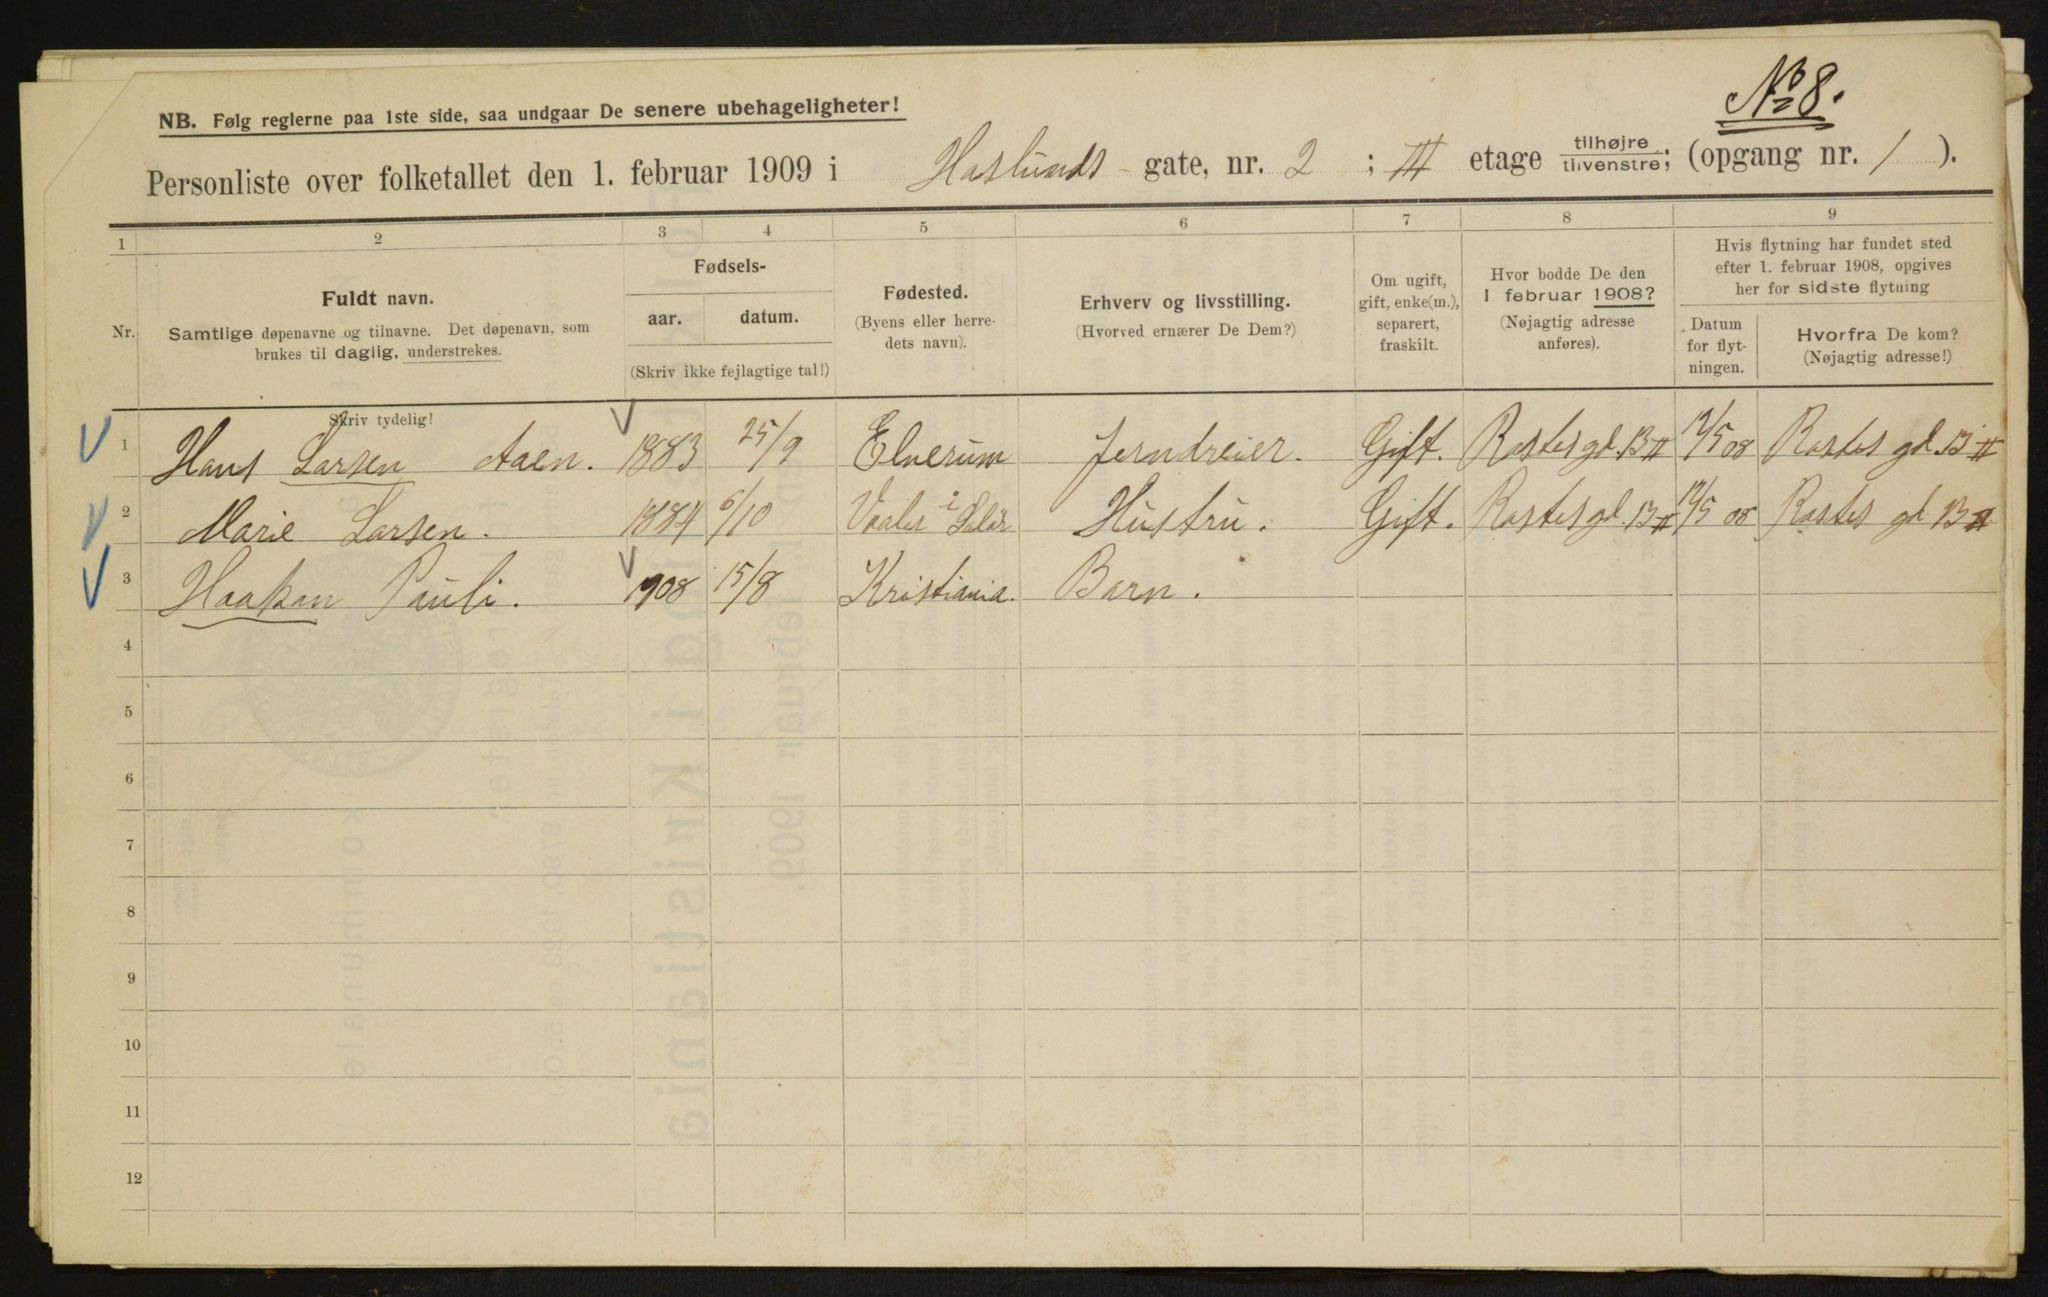 No 8.
NB. Følg reglerne paa 1ste side, saa undgaar De senere ubehageligheter!
Personliste over folketallet den 1. februar 1909 i Haslunds - gate, nr. 2 ; III etage tilhøjre / tilvenstre; (opgang nr. 1 ).
1 2 3 4 5 6 7 8 9
Nr. Fuldt navn. Samtlige døpenavne og tilnavne. Det døpenavn, som brukes til daglig, understrekes. Skriv tydelig!
Fødsels- aar. datum. (Skriv ikke fejlagtige tal!)
Fødested. (Byens eller herredets navn).
Erhverv og livsstilling. (Hvorved ernærer De Dem?)
Om ugift, gift, enke(m.), separert, fraskilt.
Hvor bodde De den 1. februar 1908? (Nøjagtig adresse anføres).
Hvis flytning har fundet sted efter 1. februar 1908, opgives her for sidste flytning
Datum for flytningen. Hvorfra De kom? (Nøjagtig adresse!)
1 Hans Larsen Aaen. 1883 25/9 Elverum Jerndreier. Gift. Rostesgd. 13 II 12/5 08 Rostes gd. 13 II
2 Marie Larsen. 1884 6/10 Vaaler i Solør Hustru. Gift. Rostesgd. 13 II 12/5 08 Rostes gd 13 II
3 Haakon Pauli. 1908 15/8 Kristiania. Barn.
4
5
6
7
8
9
10
11
12